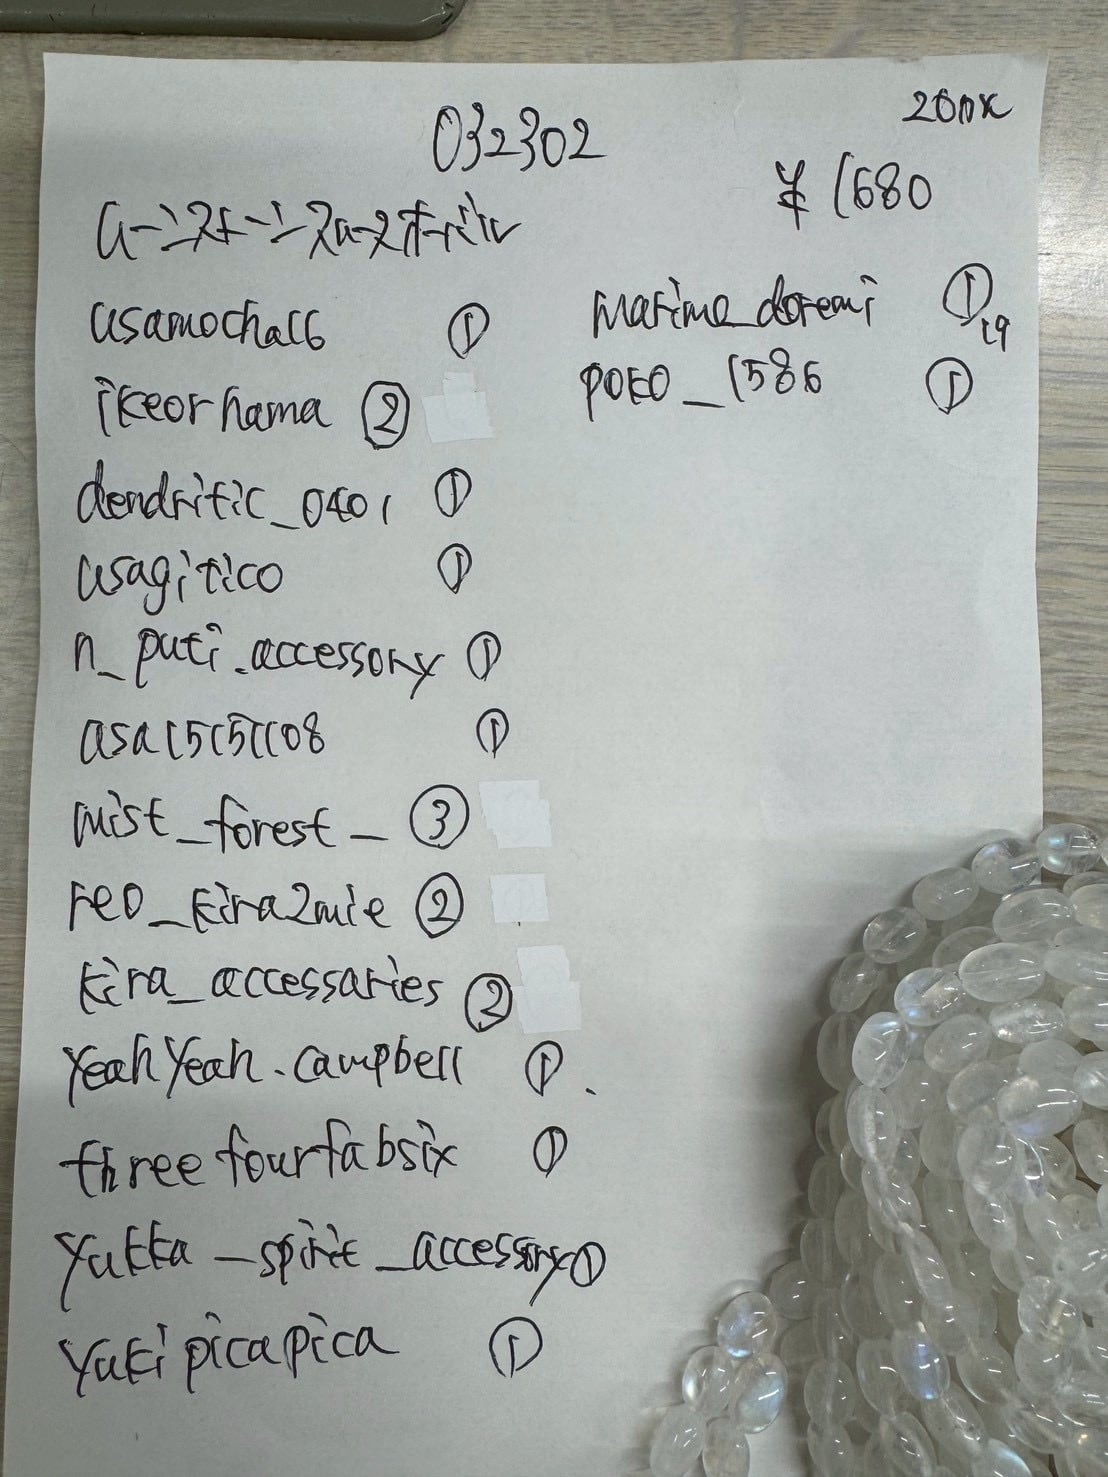 032302
200x
¥1680
ムーンストーンスムースオーバル
usamocha16 ①
ikeorhama ②
dendritic_0401 ①
usagitico ①
n_puti.accessory ①
asa15151108 ①
mist_forest_ ③
reo_kira2mie ②
kira_accessaries ②
YeahYeah.campbell ①
threefourfabsix ①
yukka_spirit_accessory ①
yukipicapica ①
marimo_doremi ①
19
poko_1586 ①